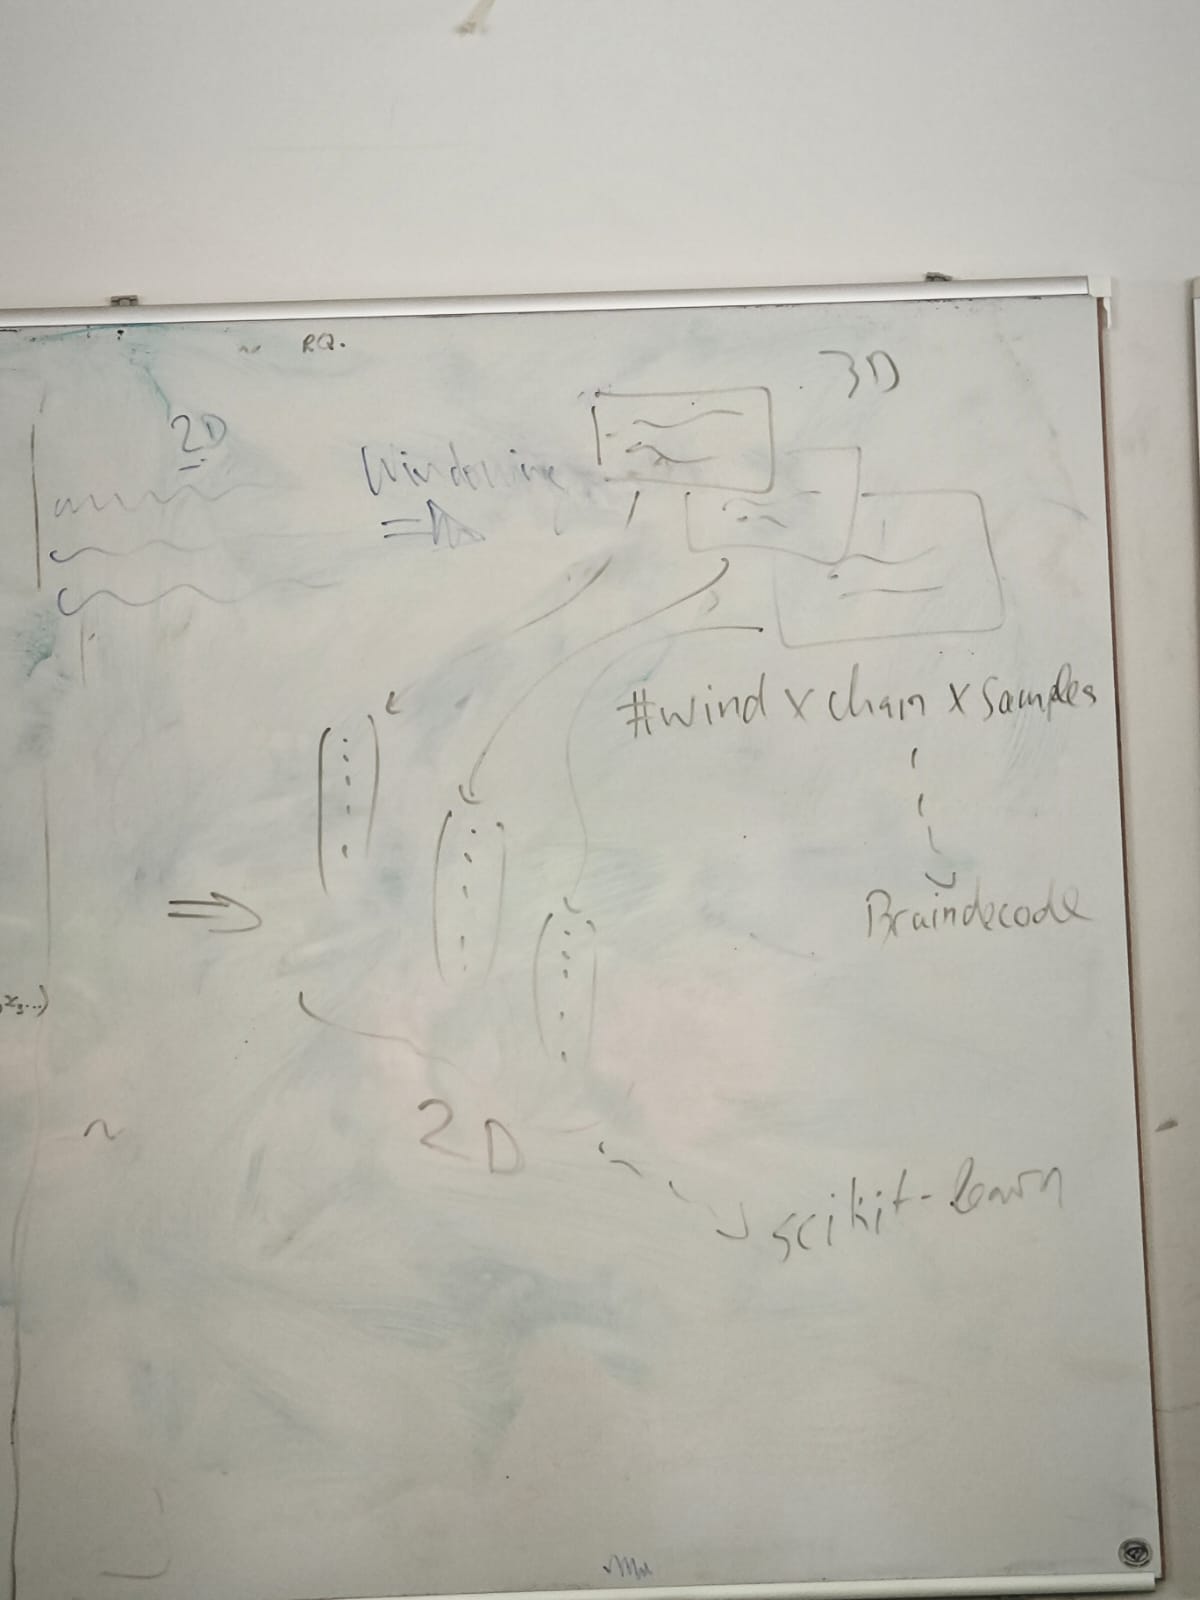 RQ.
3D
2D
Windowing
#wind x chan x samples
Braindecode
2D
scikit-learn